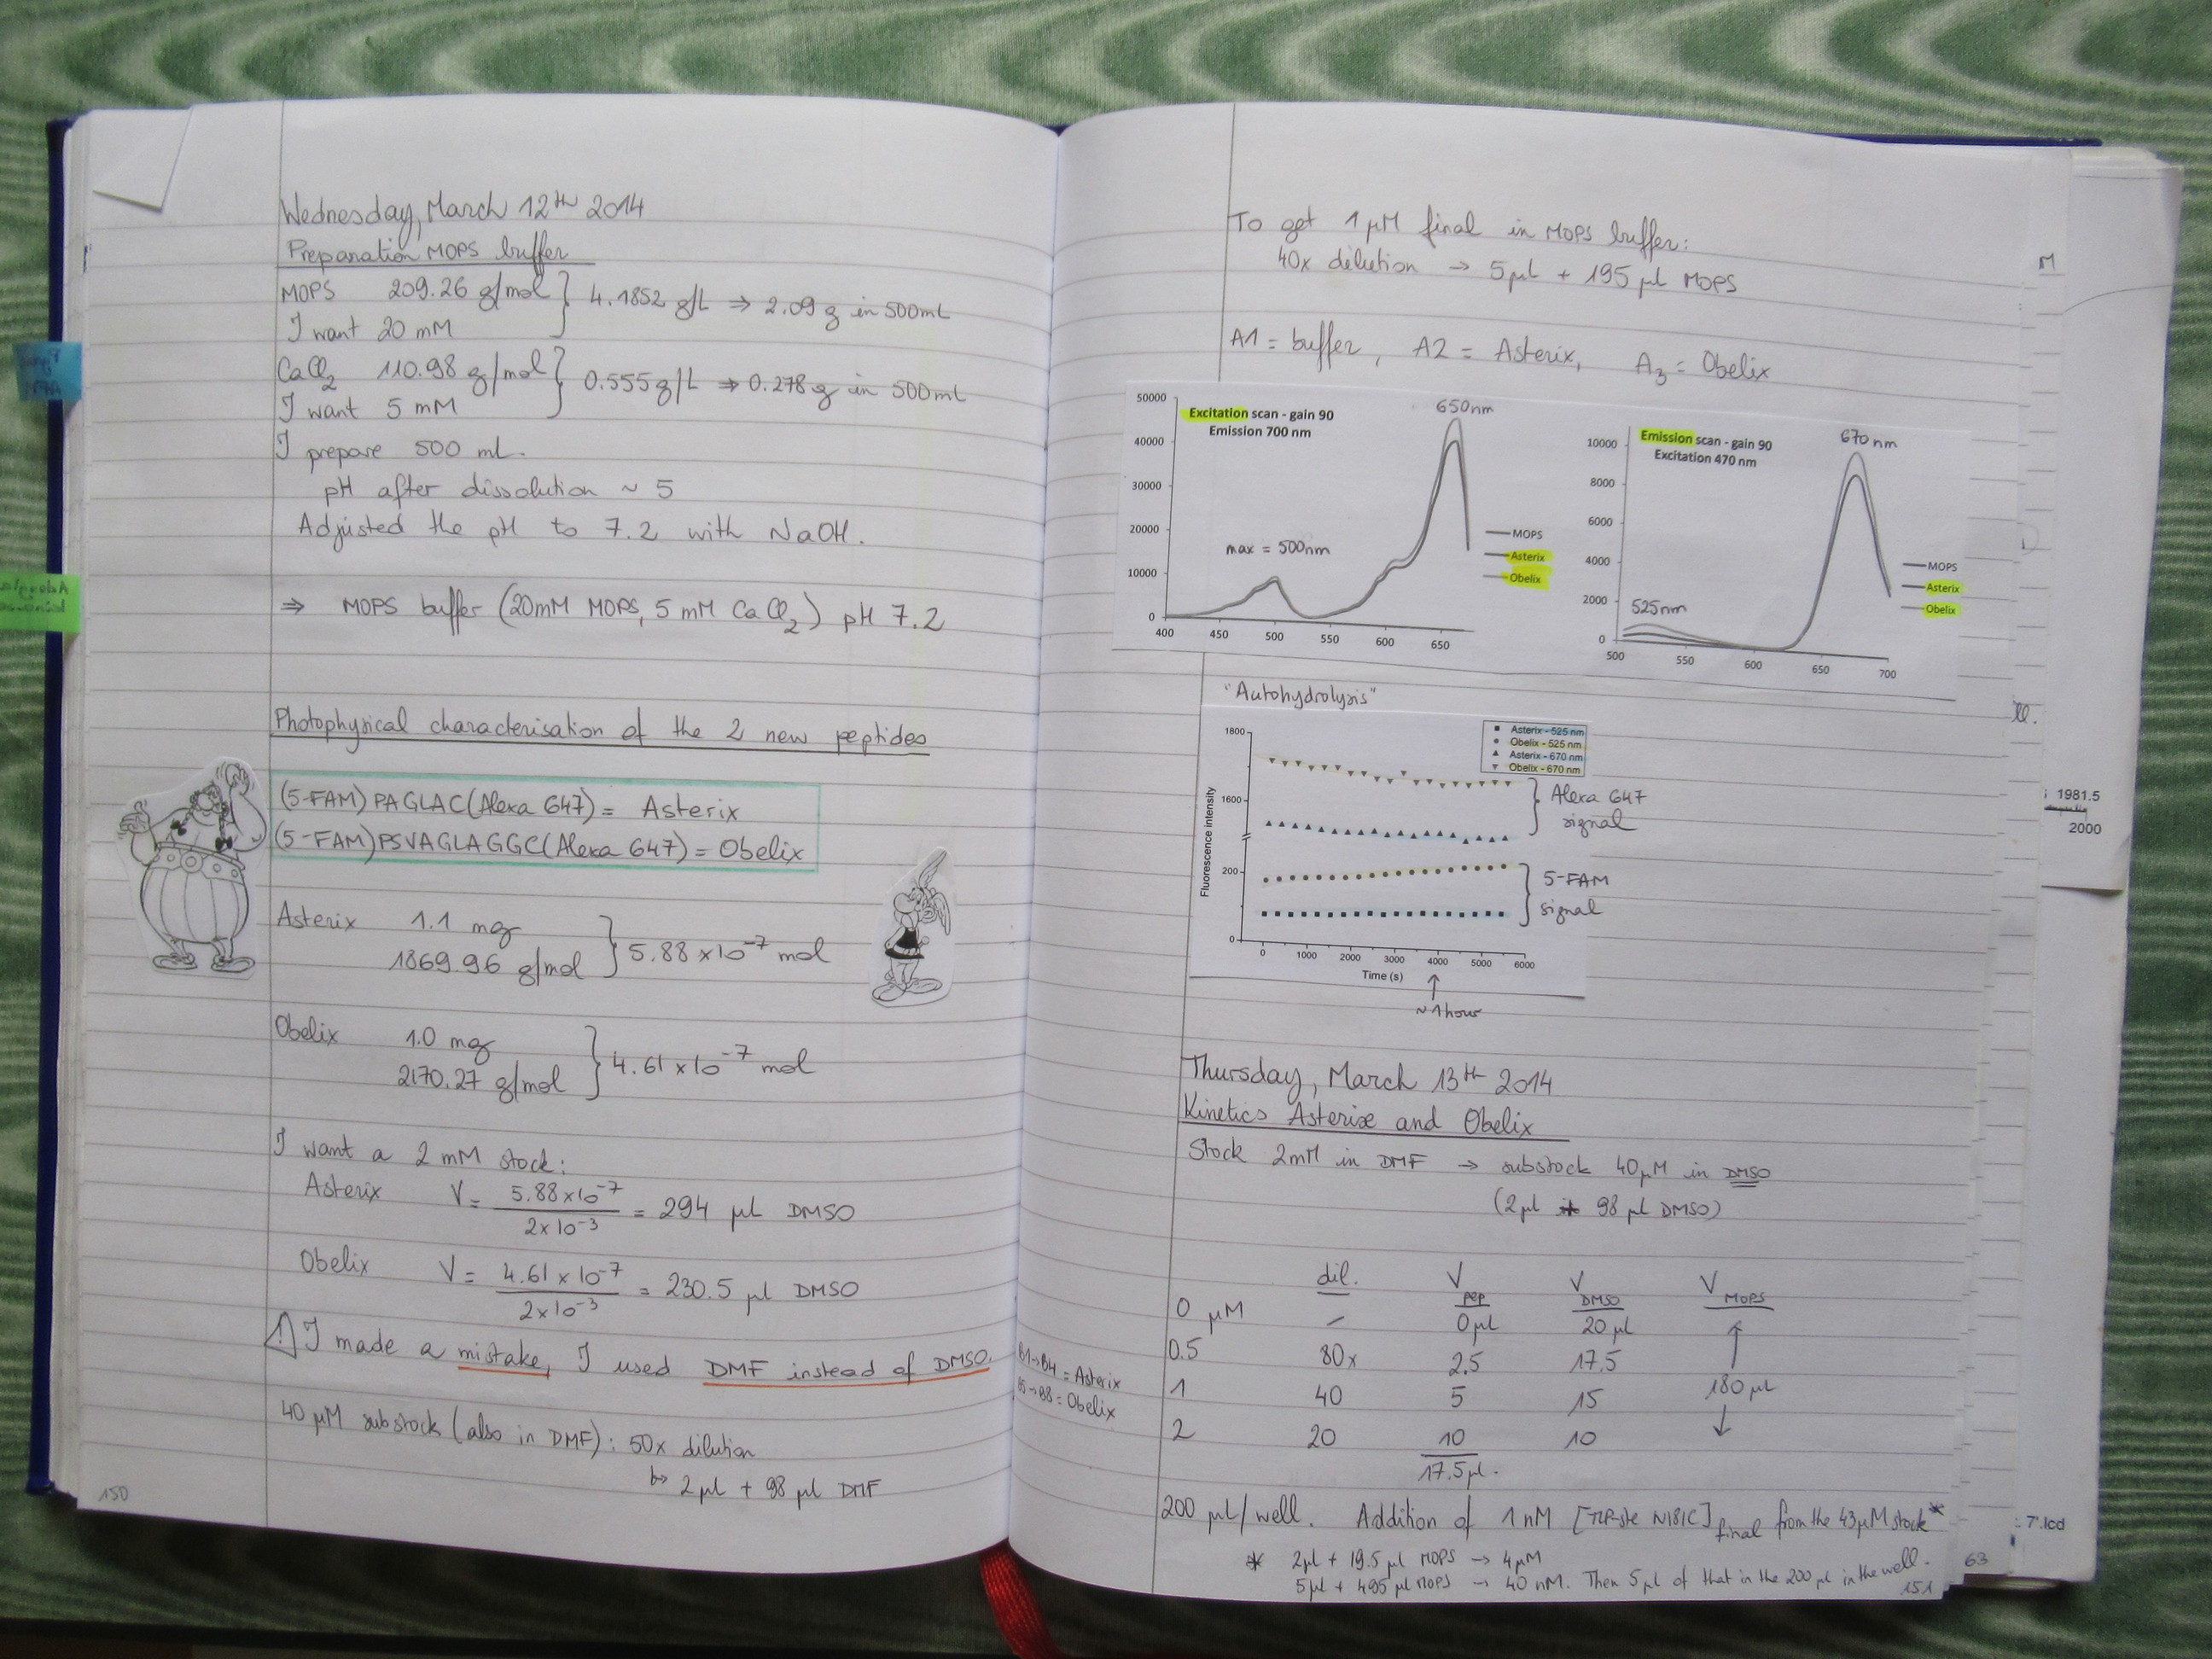 Wednesday, March 12th 2014
Preparation MOPS buffer
MOPS 209.26 g/mol } 4.1852 g/L ⇒ 2.09 g in 500mL
I want 20 mM
CaCl2 110.98 g/mol } 0.555 g/L ⇒ 0.278 g in 500mL
I want 5 mM
I prepare 500 mL.
pH after dissolution ~ 5
Adjusted the pH to 7.2 with NaOH.
⇒ MOPS buffer (20mM MOPS, 5 mM CaCl2) pH 7.2
Photophysical characterisation of the 2 new peptides
(5-FAM)PAGLAC(Alexa 647) = Asterix
(5-FAM)PSVAGLAGGC(Alexa 647) = Obelix
Asterix 1.1 mg } 5.88 x10-7 mol
1869.96 g/mol
Obelix 1.0 mg } 4.61 x10-7 mol
2170.27 g/mol
I want a 2 mM stock:
Asterix V = 5.88x10-7 / 2x10-3 = 294 µl DMSO
Obelix V = 4.61 x 10-7 / 2x10-3 = 230.5 µl DMSO
! I made a mistake, I used DMF instead of DMSO.
40 µM substock (also in DMF): 50x dilution
↳ 2 µl + 98 µl DMF
150
To get 1 µM final in MOPS buffer:
40x dilution → 5µl + 195 µl MOPS
A1 = buffer, A2 = Asterix, A3 = Obelix
Excitation scan - gain 90
Emission 700 nm
650nm
max = 500nm
50000
40000
30000
20000
10000
0
400 450 500 550 600 650
MOPS
Asterix
Obelix
Emission scan - gain 90
Excitation 470 nm
670 nm
525nm
10000
8000
6000
4000
2000
0
500 550 600 650 700
MOPS
Asterix
Obelix
"Autohydrolysis"
Asterix - 525 nm
Obelix - 525 nm
Asterix - 670 nm
Obelix - 670 nm
1800
1600
200
0
Fluorescence intensity
0 1000 2000 3000 4000 5000 6000
Time (s)
} Alexa 647
signal
} 5-FAM
signal
↑
~1hour
Thursday, March 13th 2014
Kinetics Asterix and Obelix
Stock 2mM in DMF → substock 40µM in DMSO
(2µl + 98 µl DMSO)
dil. Vpep VDMSO VMOPS
0 µM – 0µl 20 µl ↑
0.5 80x 2.5 17.5
1 40 5 15 180 µl
2 20 10 10 ↓
17.5µl.
B1→B4 = Asterix
B5→B8 = Obelix
200 µl/well. Addition of 1 nM [TLP-ste N181C] final from the 43µM stock*
* 2µl + 19.5 µl MOPS → 4µM
5µl + 495 µl MOPS → 40 nM. Then 5µl of that in the 200 µl in the well.
151
63
M
ll.
1981.5
2000
7'.lcd